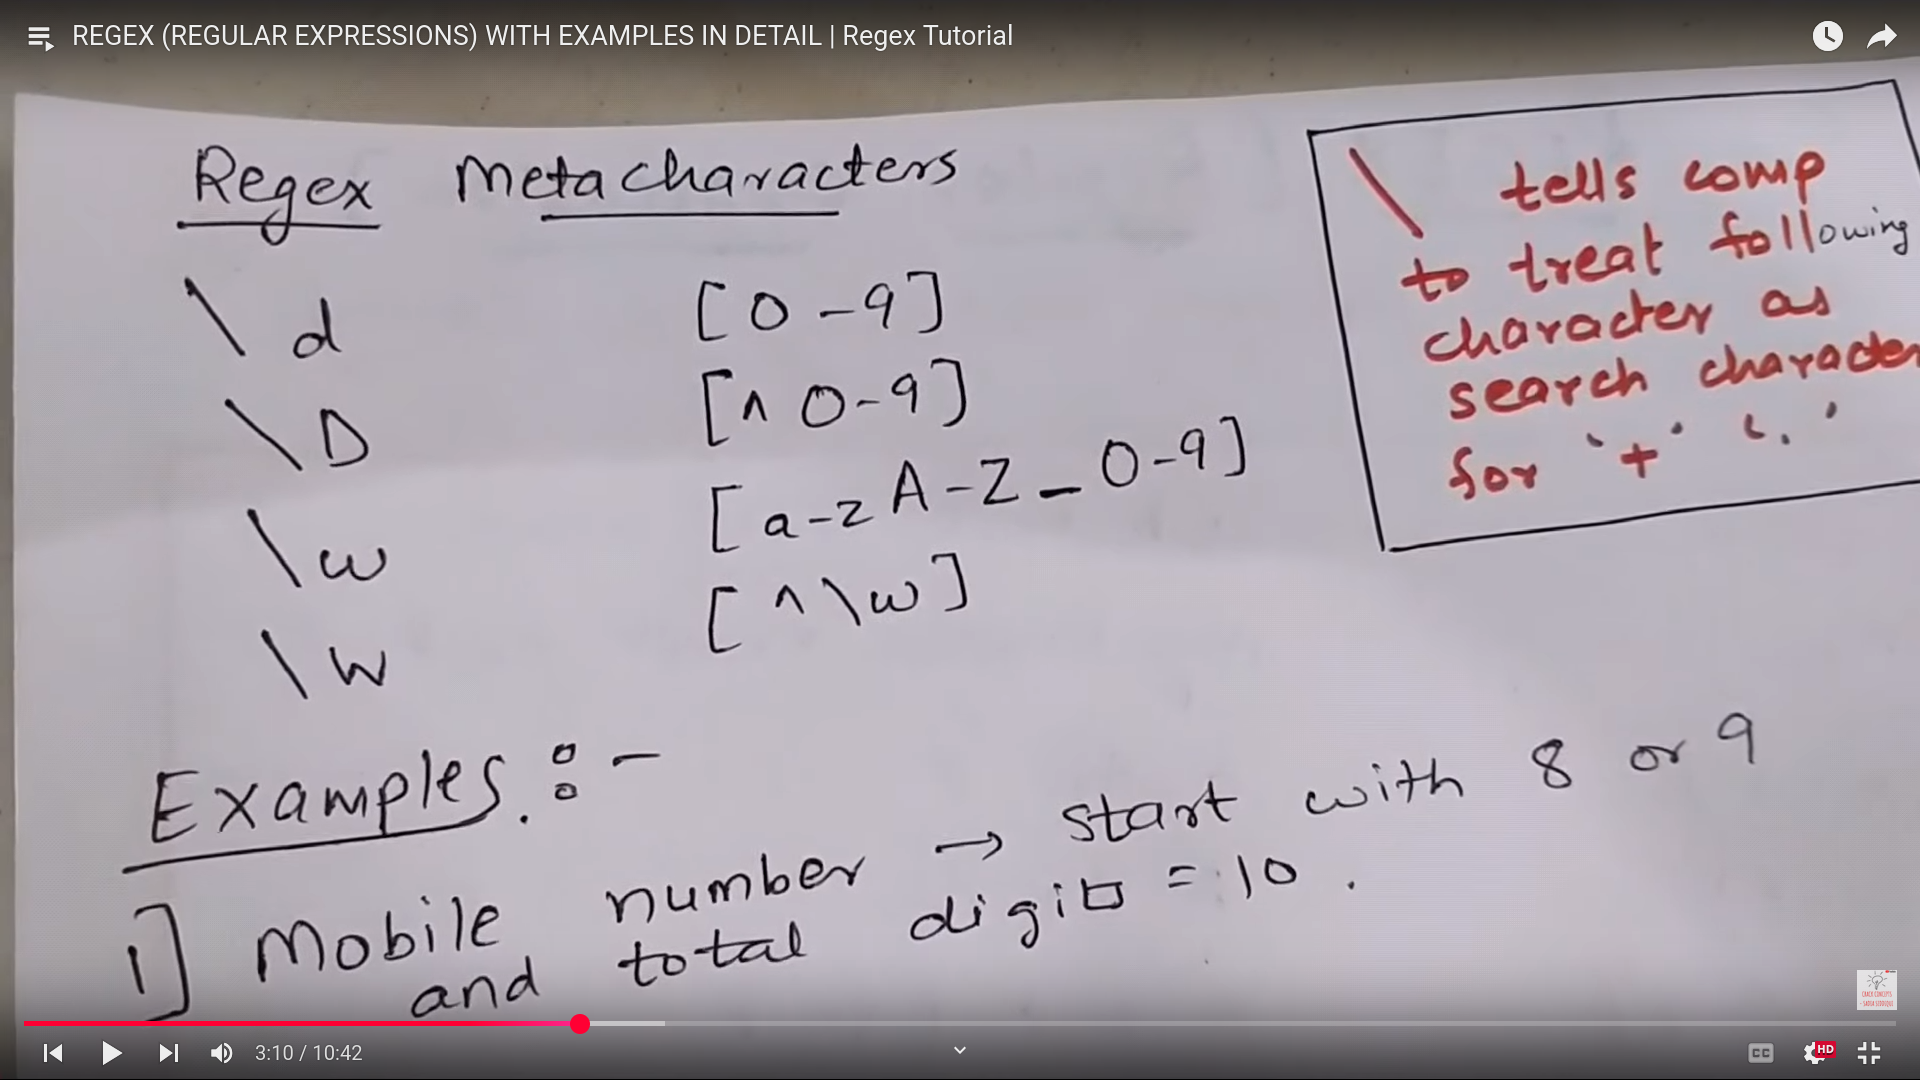 REGEX (REGULAR EXPRESSIONS) WITH EXAMPLES IN DETAIL | Regex Tutorial
Regex Metacharacters
\d [0-9]
\D [^0-9]
\w [a-zA-Z_0-9]
\W [^\w]
\ tells comp
to treat following
character as
search character
for '+' '.'
Examples :-
1] Mobile number → start with 8 or 9
and total digits = 10.
3:10 / 10:42
CC
HD